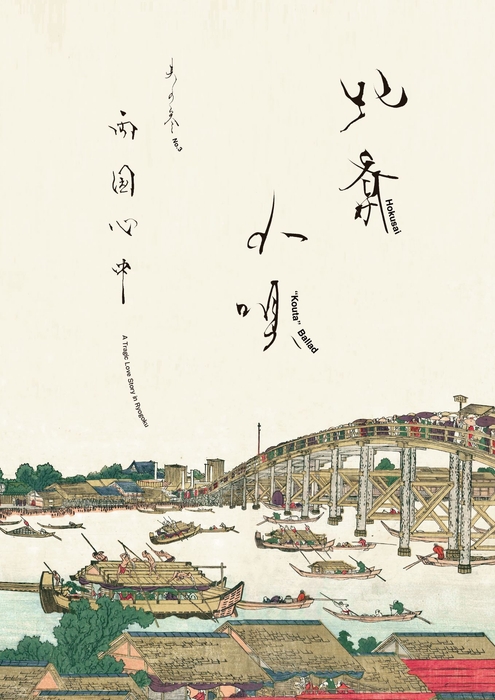 北斎
Hokusai
小唄
"Kouta" Ballad
両国心中
A Tragic Love Story in Ryogoku